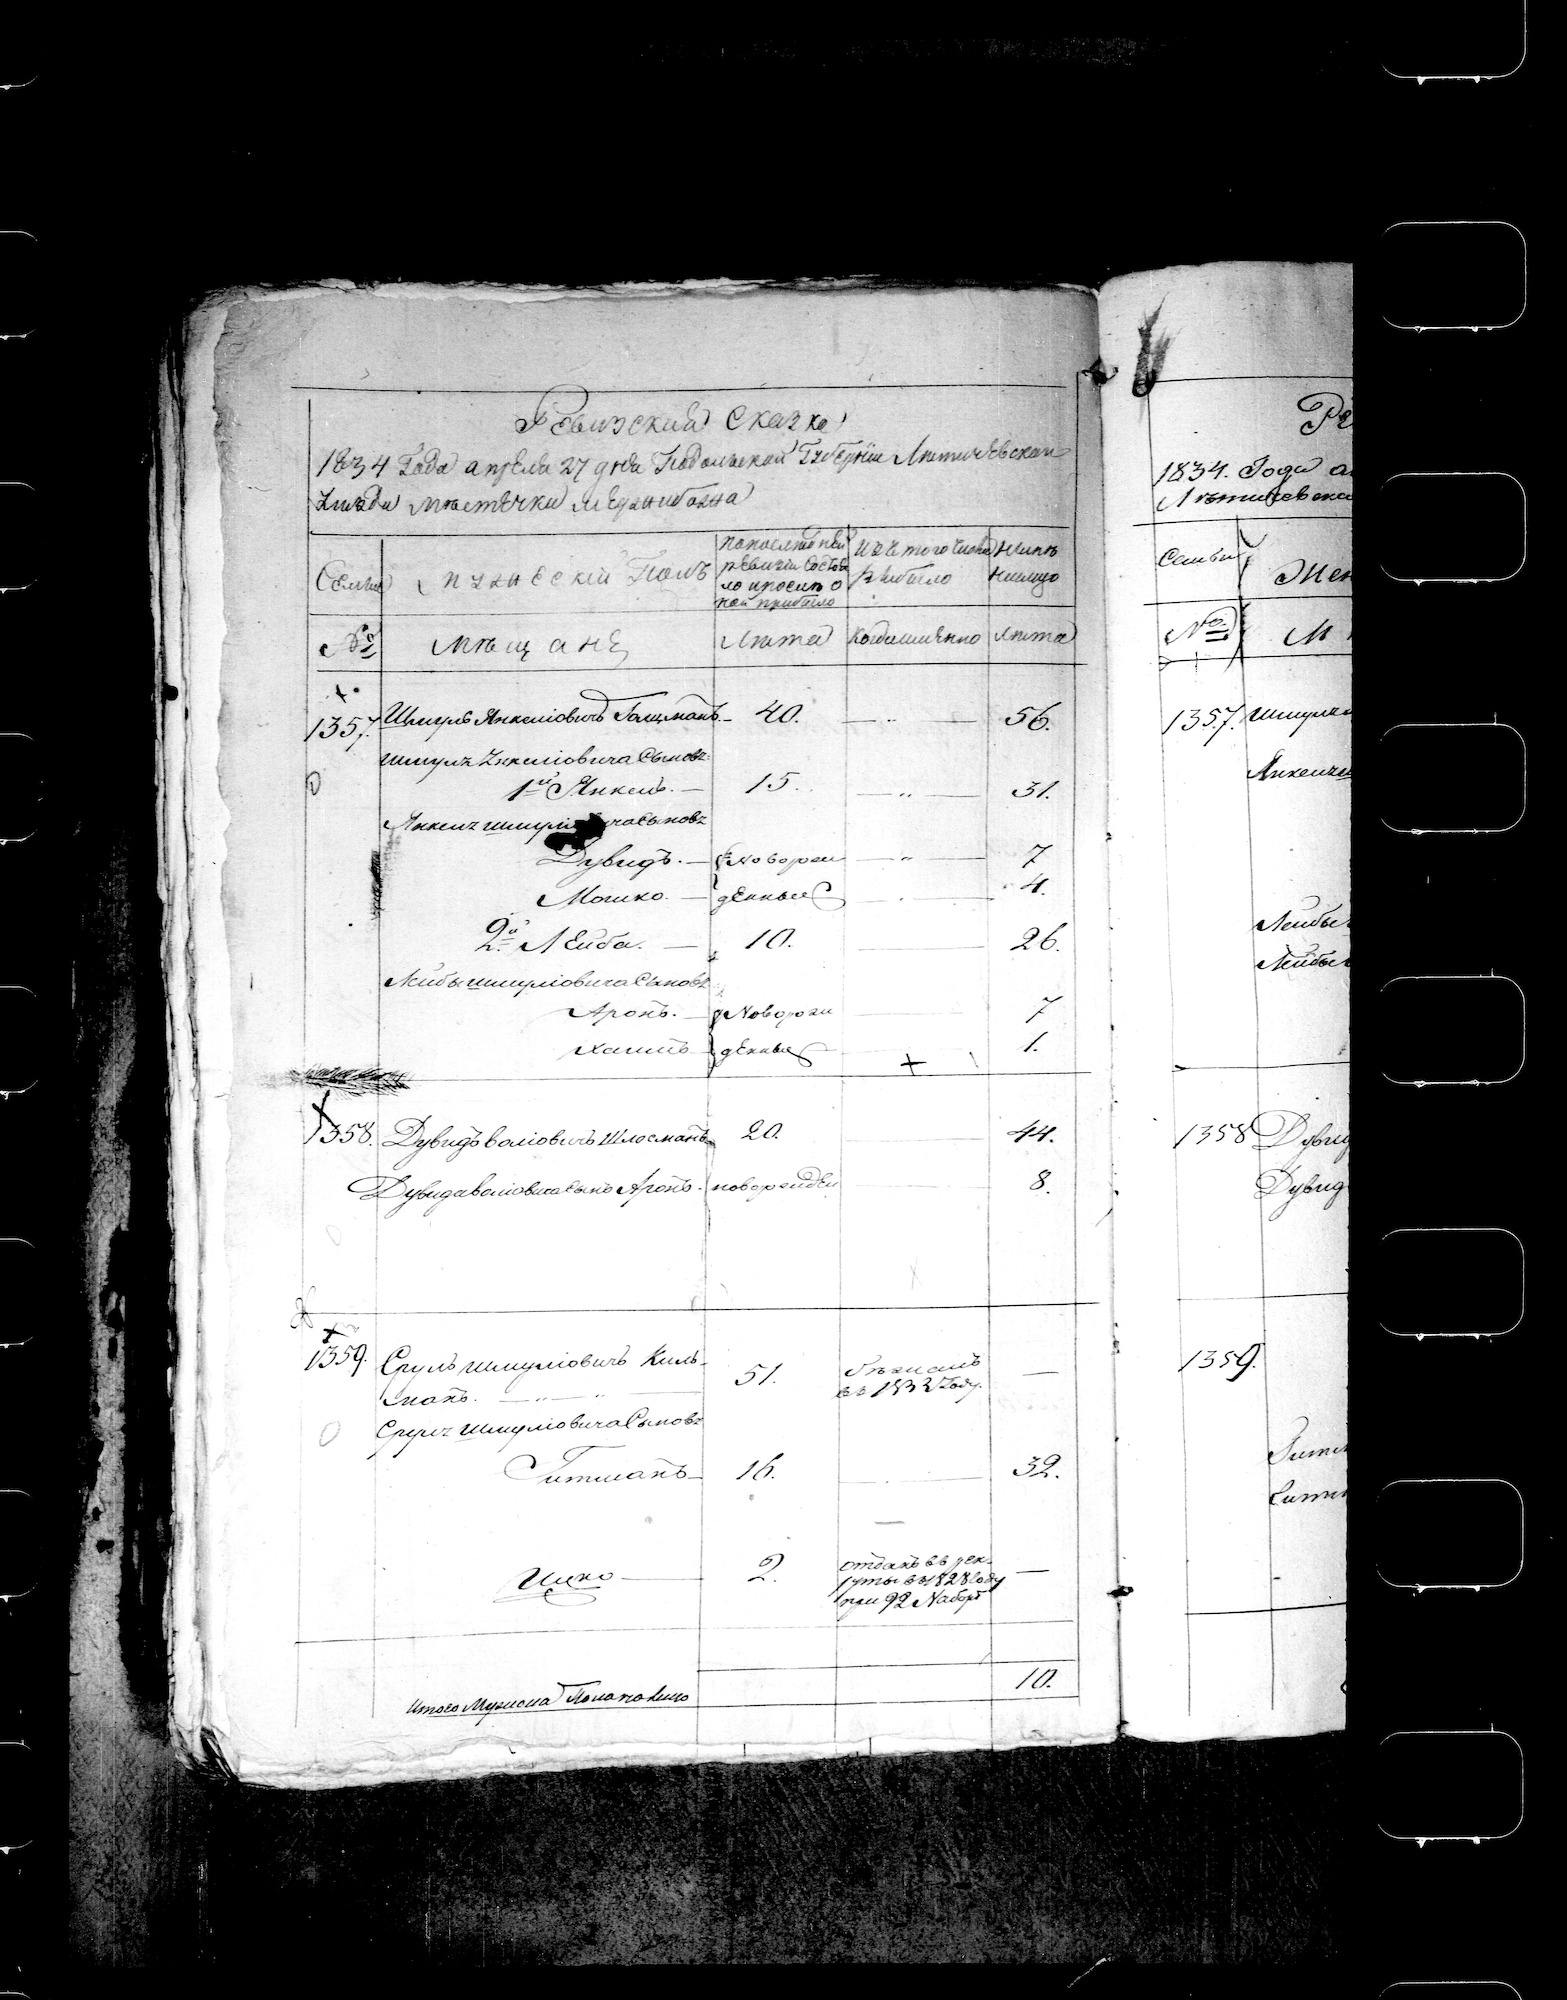 Ревизская Сказка
1834 Года апреля 27 дня Подольской Губернии Литичевскаи
Уѣзда мѣстечка Меджибожа
Семьи
Мужескій Полъ
По последней ревизіи состояло и после оной прибыло
Изъ того числа выбыло
Нынѣ на лицо
№
Мѣщане
Лѣта
Когда именно
Лѣта
1357. Шмуль Янкеліовичъ Гольцманъ 40. — „ — 56.
Шмуля Янкеліовича Сыновъя
1й Янкель. — 15. — „ — 31.
Янкеля Шмуліовича Сыновъя
Дувидъ. — Новорож — „ — 7
Мошко. — денные — 4.
2й Лейба. — 10. — 26.
Лейбы Шмуліовича Сыновъя
Аронъ. — Новорож — 7
Хаимъ денные — 1.
1358. Дувидъ Воліовичъ Шлосманъ 20. — 44.
Дувида Воліовича Сынъ Аронъ. новорожден — 8.
1359. Сруль Шмуліовичъ Киль-
манъ. — „ — „ — 51. бѣжалъ —
въ 1832 Году.
Сруля Шмуліовича Сыновъя
Гитманъ — 16. — 32.
Ицко — 2. отданъ въ рек- —
руты въ 1828 Году
при 92 Наборѣ
Итого Мужеска Пола налицо 10.
1834. Года а
Литичевска
Семьи
Жен
№
М
1357. Шмуля
Янкеля
Лейбы
Лейбы
1358 Дувид
Дувид
1359.